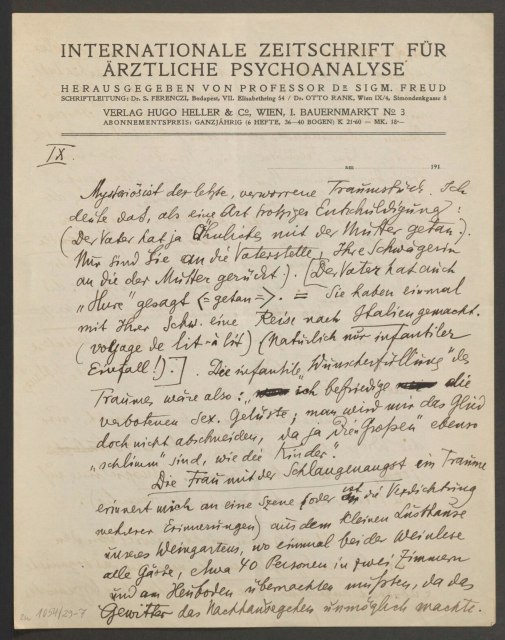 INTERNATIONALE ZEITSCHRIFT FÜR
ÄRZTLICHE PSYCHOANALYSE
HERAUSGEGEBEN VON PROFESSOR DR SIGM. FREUD
SCHRIFTLEITUNG: Dr. S. FERENCZI, Budapest, VII. Elisabethring 54 / Dr. OTTO RANK, Wien IX/4, Simondenkgasse 8
VERLAG HUGO HELLER & Co, WIEN, I. BAUERNMARKT No 3
ABONNEMENTSPREIS: GANZJÄHRIG (6 HEFTE, 36—40 BOGEN) K 21·60 = MK. 18·—
IX.
am 191
Mysteriös ist der letzte, verworrene Traumstück. Ich
deute das, als eine Art trotziger Entschuldigung:
(Der Vater hat ja Ähnliches mit der Mutter getan).
Nur sind Sie an die Vaterstelle, Ihre Schwägerin
an die der Mutter gerückt). [Der Vater hat auch
„Hure" gesagt (= getan =). = Sie haben einmal
mit Ihrer Schw. eine Reise nach Italien gemacht.
(voyage de lit-à-lit) (Natürlich nur infantiler
Einfall!).] Die infantile Wunscherfüllung des
Traumes wäre also: „ich befriedige die
verbotenen Sex. Gelüste; man wird mir das Glied
doch nicht abschneiden, da ja „die Großen" ebenso
„schlimm" sind, wie die Kinder".
Die Frau mit der Schlangenangst im Traume
erinnert mich an eine Szene (oder ist die Verdichtung
mehrerer Erinnerungen) aus dem kleinen Lusthause
unseres Weingartens, wo einmal bei der Weinlese
alle Gäste, etwa 40 Personen in zwei Zimmern
und am Heuboden übernachten mußten, da das
Gewitter das Nachhausegehen unmöglich machte.
1054/29-7